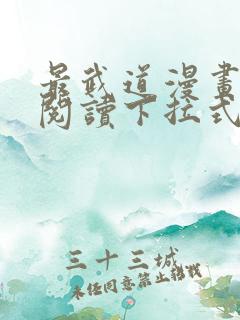 最武道漫畫
閱讀下拉式
三十三城
未经同意禁止转载